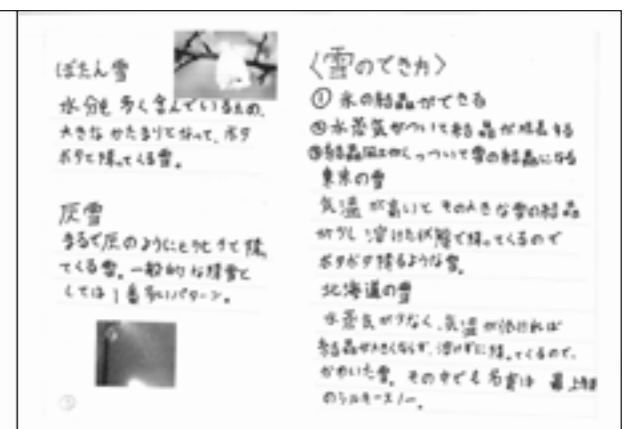 ぼたん雪
水分を多く含んでいるため、
大きなかたまりとなって、ボタ
ボタと降ってくる雪。
灰雪
まるで灰のようにひらひらと降っ
てくる雪。一般的な降雪と
しては1番多いパターン。
〈雪のでき方〉
① 氷の結晶ができる
②水蒸気がついて結晶が成長する
③結晶同士がくっついて雪の結晶になる
東京の雪
気温が高いとその大きな雪の結晶
が少し溶けた状態で降ってくるので
ボタボタ降るような雪。
北海道の雪
水蒸気が少なく、気温が低ければ
結晶が大きくならず、溶けずに降ってくるので、
かわいた雪。その中でも 最上級
のシルキースノー。